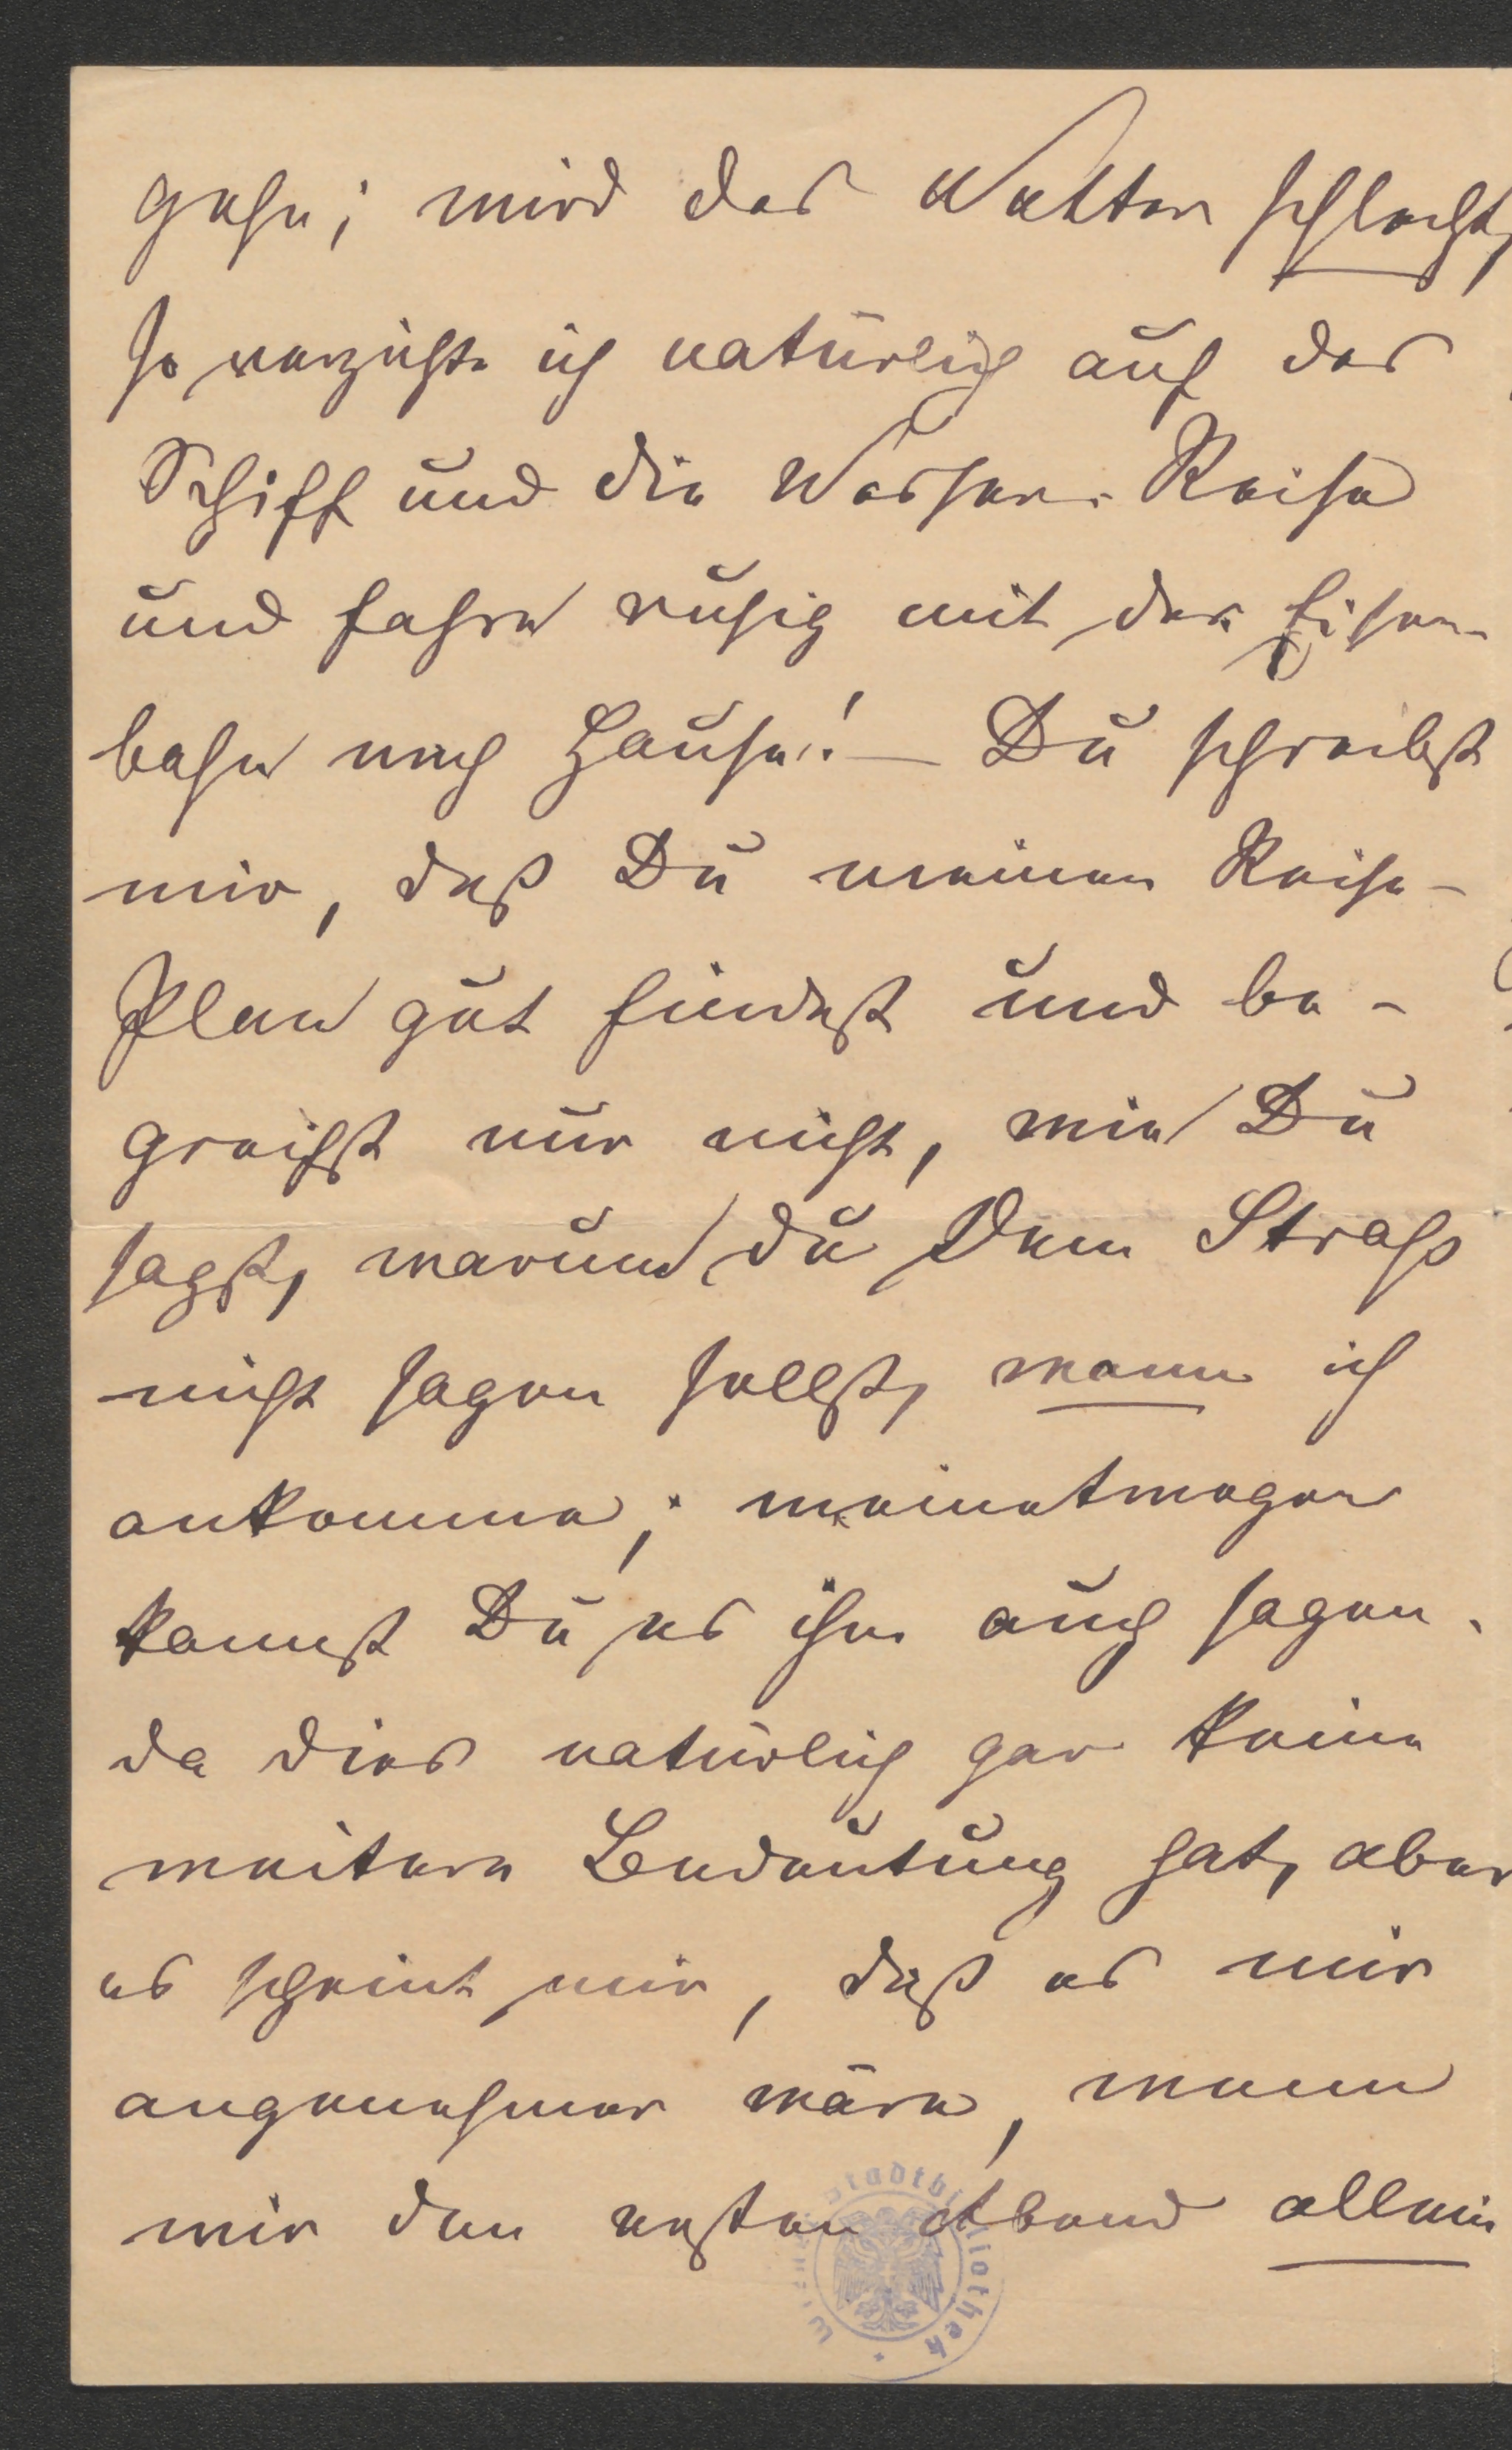 gehe; wird das Wetter schlecht,
so verzichte ich natürlich auf das
Schiff und die Wasser-Reise
und fahre ruhig mit der Eisen-
bahn nach Hause! — Du schreibst
mir, daß Du meinen Reise-
Plan gut findest und be-
greifst nur nicht, wie Du
sagst, warum du Dem Straß
nicht sagen sollst, wann ich
ankomme; meinetwegen
kannst Du es ihm auch sagen,
da dies natürlich gar keine
weitere Bedeutung hat, aber
es scheint mir, daß es mir
angenehmer wäre, wenn
wir den ersten Abend allein
Wiener Stadtbibliothek